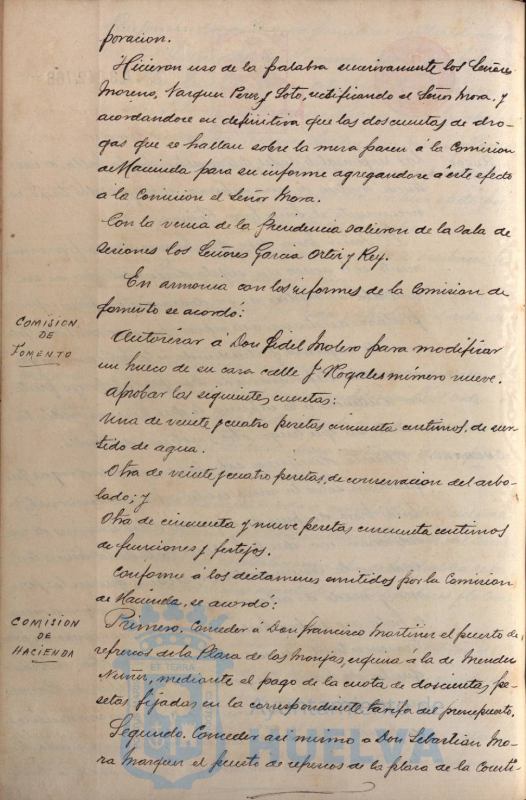 poracion.
Hicieron uso de la palabra sucesivamente los Señores
Moreno, Vazquez Perez y Soto, rectificando el Señor Mora, y
acordandose en definitiva que las dos cuentas de dro-
gas que se hallan sobre la mesa pasen á la Comision
de Hacienda para su informe agregandose á este efecto
á la Comision el Señor Mora.
Con la venia de la Presidencia salieron de la sala de
sesiones los Señores Garcia Ortiz y Rey.
En armonia con los informes de la Comision de
fomento se acordó:
COMISION
DE
FOMENTO
Autorizar á Don Fidel Molero para modificar
un hueco de su casa calle J. Nogales número nueve.
Aprobar las siguientes cuentas:
Una de veinte y cuatro pesetas cincuenta centimos, de sur-
tido de agua.
Otra de veinte y cuatro pesetas, de conservacion del arbo-
lado; y
Otra de cincuenta y nueve pesetas cincuenta centimos
de funciones y festejos.
Conforme á los dictamenes emitidos por la Comision
de Hacienda, se acordó:
COMISION
DE
HACIENDA
Primero. Conceder á Don Francisco Martinez el puesto de
refrescos de la Plaza de las Monjas, esquina á la de Mendez
Nuñez, mediante el pago de la cuota de doscientas pe-
setas fijadas en la correspondiente tarifa del presupuesto.
Segundo. Conceder asi mismo a Don Sebastian Mo-
ra Marquez el puesto de refrescos de la plaza de la Consti-
ET TERRÆ
HUELVA